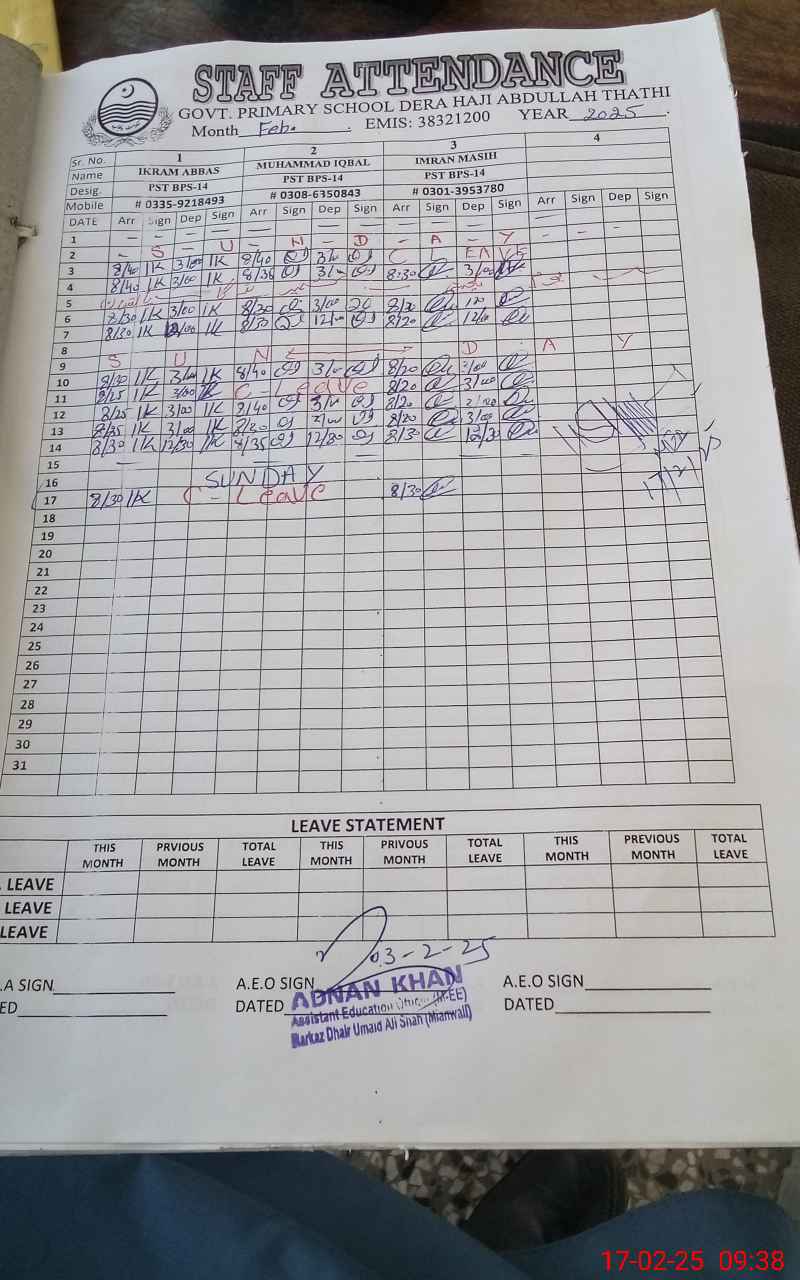 STAFF ATTENDANCE
GOVT. PRIMARY SCHOOL DERA HAJI ABDULLAH THATHI
Month Feb. EMIS: 38321200 YEAR 2025
Sr. No. 1 2 3 4
Name IKRAM ABBAS MUHAMMAD IQBAL IMRAN MASIH
Desig. PST BPS-14 PST BPS-14 PST BPS-14
Mobile # 0335-9218493 # 0308-6350843 # 0301-3953780
DATE Arr Sign Dep Sign Arr Sign Dep Sign Arr Sign Dep Sign Arr Sign Dep Sign
1
2 S U N D A Y
3 8/40 IK 3/00 IK 8/40 3/00 C L EAVE
4 8/40 IK 3/00 IK 8/36 3/00 8:30 3/00
5
6 8/30 IK 3/00 IK 8/30 3/00 8/20
7 8/30 IK 12/00 IK 8/30 12/00 8/20 12/00
8
9 S U N D A Y
10 8/30 IK 3/00 IK 8/40 3/00 8/20 3/00
11 8/25 IK 3/00 IK C-Leave 8/20 3/00
12 8/25 IK 3/00 IK 8/40 3/00 8/20
13 8/25 IK 3/00 IK 8/20 3/00
14 8/30 IK 12/30 IK 8/35 12/30 8/30 12/30
15
16 SUNDAY
17 8/30 IK C-Leave 8/30
17/2/25
18
19
20
21
22
23
24
25
26
27
28
29
30
31
LEAVE STATEMENT
THIS MONTH PRVIOUS MONTH TOTAL LEAVE THIS MONTH PRIVOUS MONTH TOTAL LEAVE THIS MONTH PREVIOUS MONTH TOTAL LEAVE
LEAVE
LEAVE
LEAVE
03-2-25
.A SIGN A.E.O SIGN A.E.O SIGN
ED DATED DATED
ADNAN KHAN
Assistant Education Officer (M-EE)
Markaz Dhair Umaid Ali Shah (Mianwali)
17-02-25 09:38